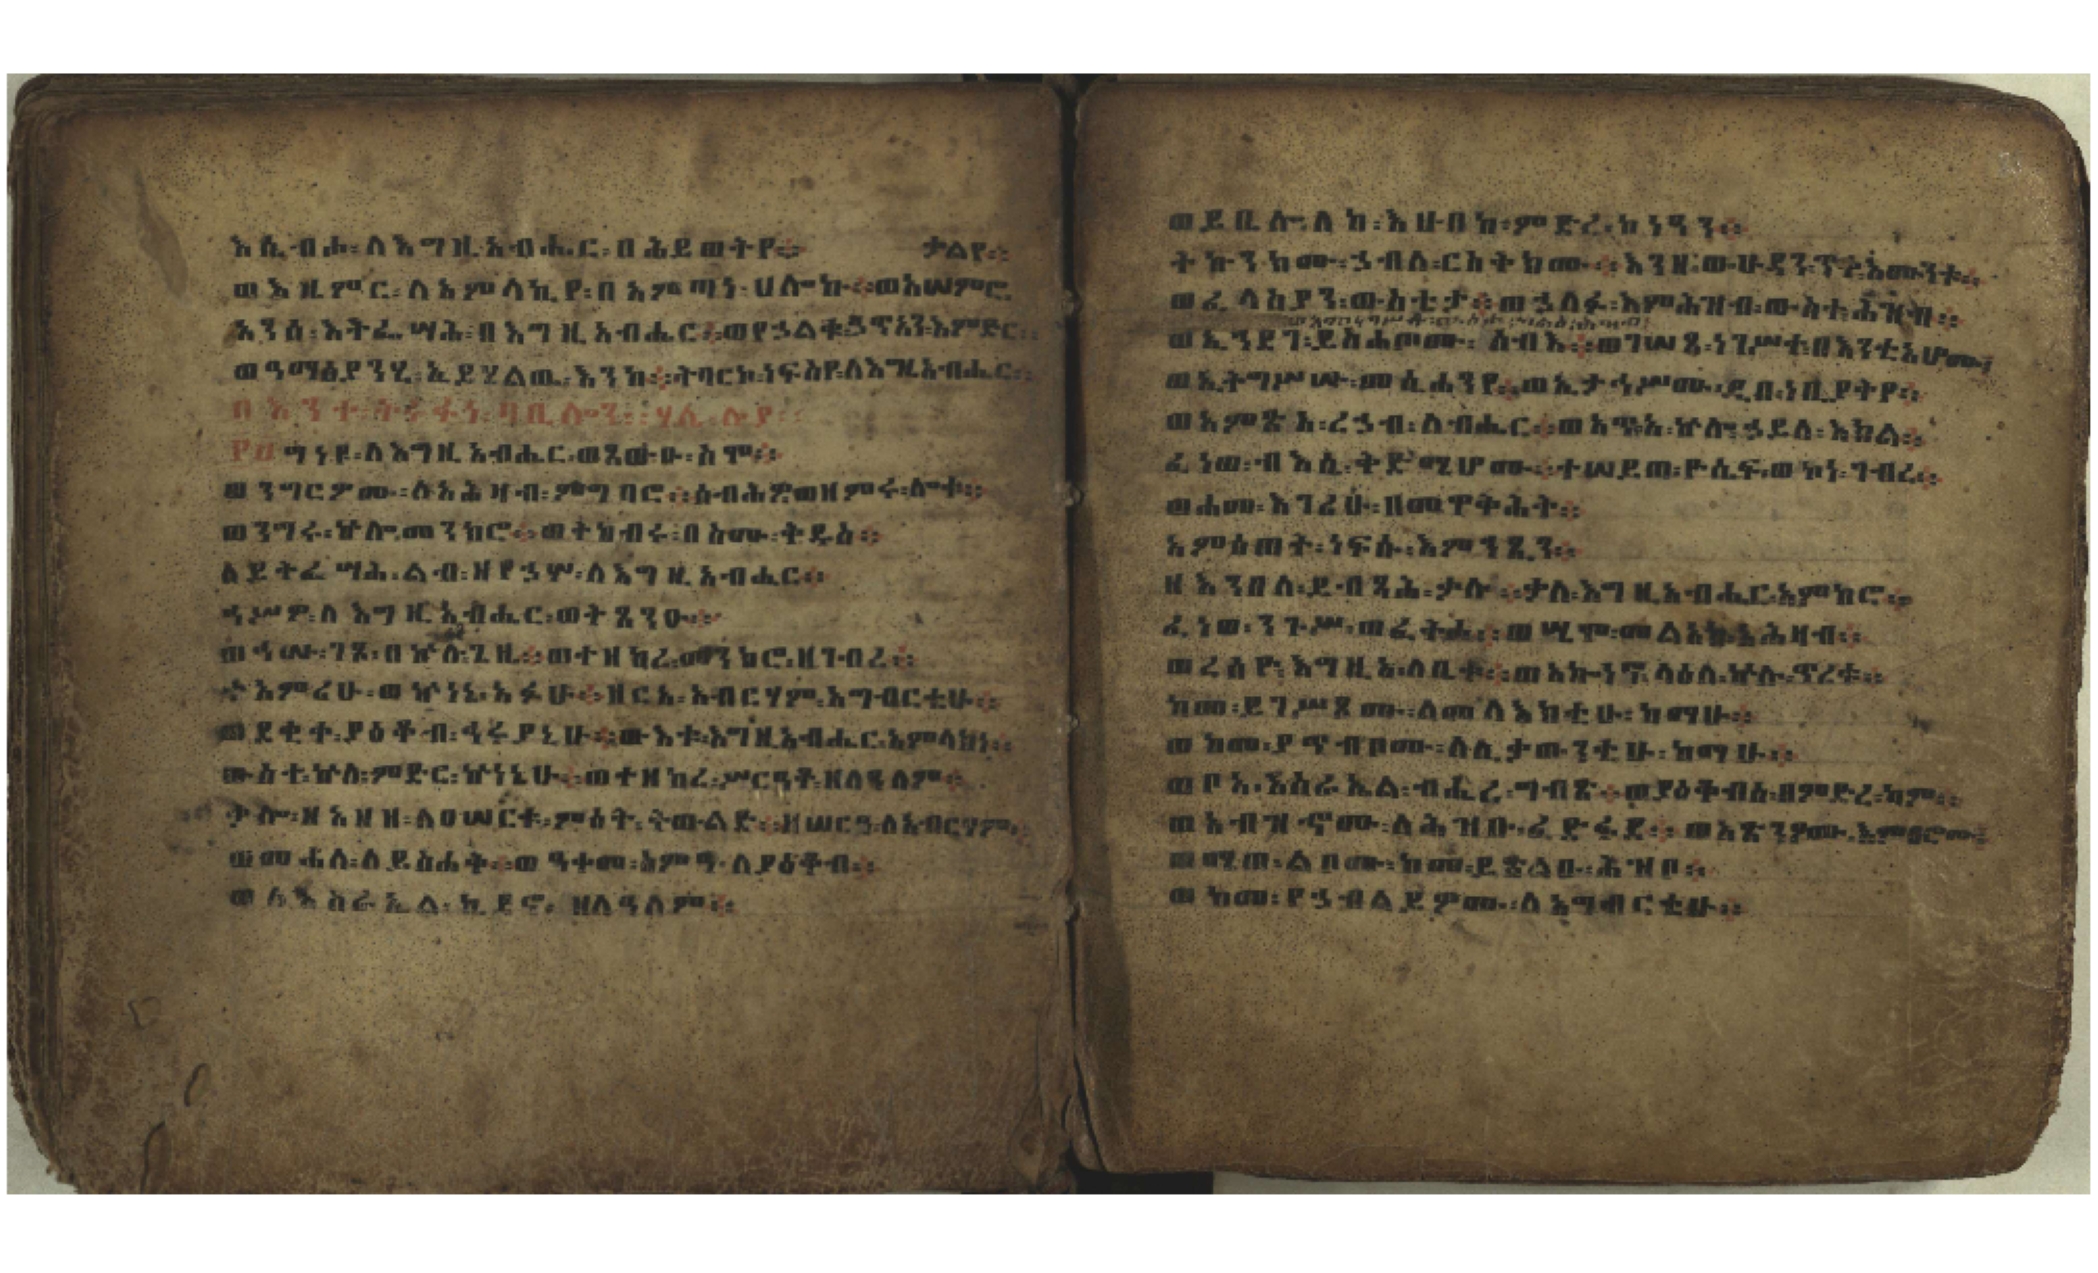 እሴብሖ፡ለእግዚአብሔር፡በሕይወትየ። ታልየ።
ወእዜምር፡ለአምላኪየ፡በአምጣነ፡ሀሎኩ።ወአሠምሮ
አንሰ፡እትፌሣሕ፡በእግዚአብሔር።ወየኃልቁ፡ኃጥአን፡እምድር።
ወዓማፅያንሂ፡ኢይሄልዉ፡እንከ።ትባርኮ፡ነፍስየ፡ለእግዚአብሔር።
በእንተ፡ትሩፋነ፡ባቢሎን።ሃሌ፡ሉያ።
ግነዩ፡ለእግዚአብሔር፡ወጸውዑ፡ስሞ።
ወንግርዎሙ፡ለአሕዛብ፡ምግባሮ።ሰብሕዎ፡ወዘምሩ፡ሎቱ።
ወንግሩ፡ኵሎ፡መንክሮ።ወትከብሩ፡በስሙ፡ቅዱስ።
ለይትፌሣሕ፡ልብ፡ዘየኃሦ፡ለእግዚአብሔር።
ኅሥዎ፡ለእግዚአብሔር፡ወትጸንዑ።
ወኅሡ፡ገጾ፡በኵሉ፡ጊዜ።ወተዘከረ፡መንክሮ፡ዘገብረ።
ተአምረሁ፡ወኵነኔ፡አፉሁ።ዘርአ፡አብርሃም፡አግብርቲሁ።
ወደቂቀ፡ያዕቆብ፡ኅሩያኒሁ።ውእቱ፡እግዚአብሔር፡አምላክነ።
ውስተ፡ኵሉ፡ምድር፡ኵነኔሁ።ወተዘከረ፡ሥርዓቶ፡ዘለዓለም።
ቃሎ፡ዘአዘዘ፡ለዐሠርቱ፡ምዕት፡ትውልድ።ዘሠርዓ፡ለአብርሃም።
ወመሐለ፡ለይስሐቅ።ወዓቀመ፡ስምዓ፡ለያዕቆብ።
ወለእስራኤል፡ኪዳኖ፡ዘለዓለም።
ወይቤሎ፡ለከ፡እሁበከ፡ምድረ፡ከነዓን።
ትኩንክሙ፡ኃብለ፡ርስትክሙ።እንዘ፡ውሁዳን፡ጥቀ፡እሙንቱ።
ወፈላስያን፡ውስቴታ።ወኃለፉ፡እምሕዝብ፡ውስተ፡ሕዝብ።
ወኢኃደገ፡ይስሐጦሙ፡ሰብእ።ወገሠጸ፡ነገሥተ፡በእንቲአሆሙ፡
ወኢትግሥሡ፡መሲሐንየ።ወኢታኅሥሙ፡ዲበ፡ነቢያትየ።
ወአምጽአ፡ረኃብ፡ለብሔር።ወአጥፍአ፡ኵሎ፡ኃይለ፡እክል።
ፈነወ፡ብእሴ፡ቅድሜሆሙ።ተሠይጠ፡ዮሴፍ፡ወኮነ፡ገብረ።
ወሐሙ፡እገሪሁ፡በመዋቅሕት።
አምሰጠት፡ነፍሱ፡እምኀጺን።
ዘእንበለ፡ይብጻሕ፡ቃሉ።ቃለ፡እግዚአብሔር፡አምከሮ።
ፈነወ፡ንጉሥ፡ወፈትሖ።ወሤሞ፡መልአከ፡አሕዛብ።
ወረሰዮ፡እግዚአ፡ለቤቱ።ወአኰነኖ፡ላዕለ፡ኵሉ፡ጥሪቱ።
ከመ፡ይገሥጾሙ፡ለመላእክቲሁ፡ከማሁ።
ወከመ፡ያጥብቦሙ፡ለሊቃውንቲሁ፡ከማሁ።
ወቦአ፡እስራኤል፡ብሔረ፡ግብጽ።ወያዕቆብሰ፡ምድረ፡ካም።
ወአብዝኖሙ፡ለሕዝቡ፡ፈድፋደ።ወአጽንዖሙ፡እምፀሮሙ።
ወሜጠ፡ልቦሙ፡ከመ፡ይጽልዑ፡ሕዝቦ።
ወከመ፡የኃብልይዎሙ፡ለአግብርቲሁ።